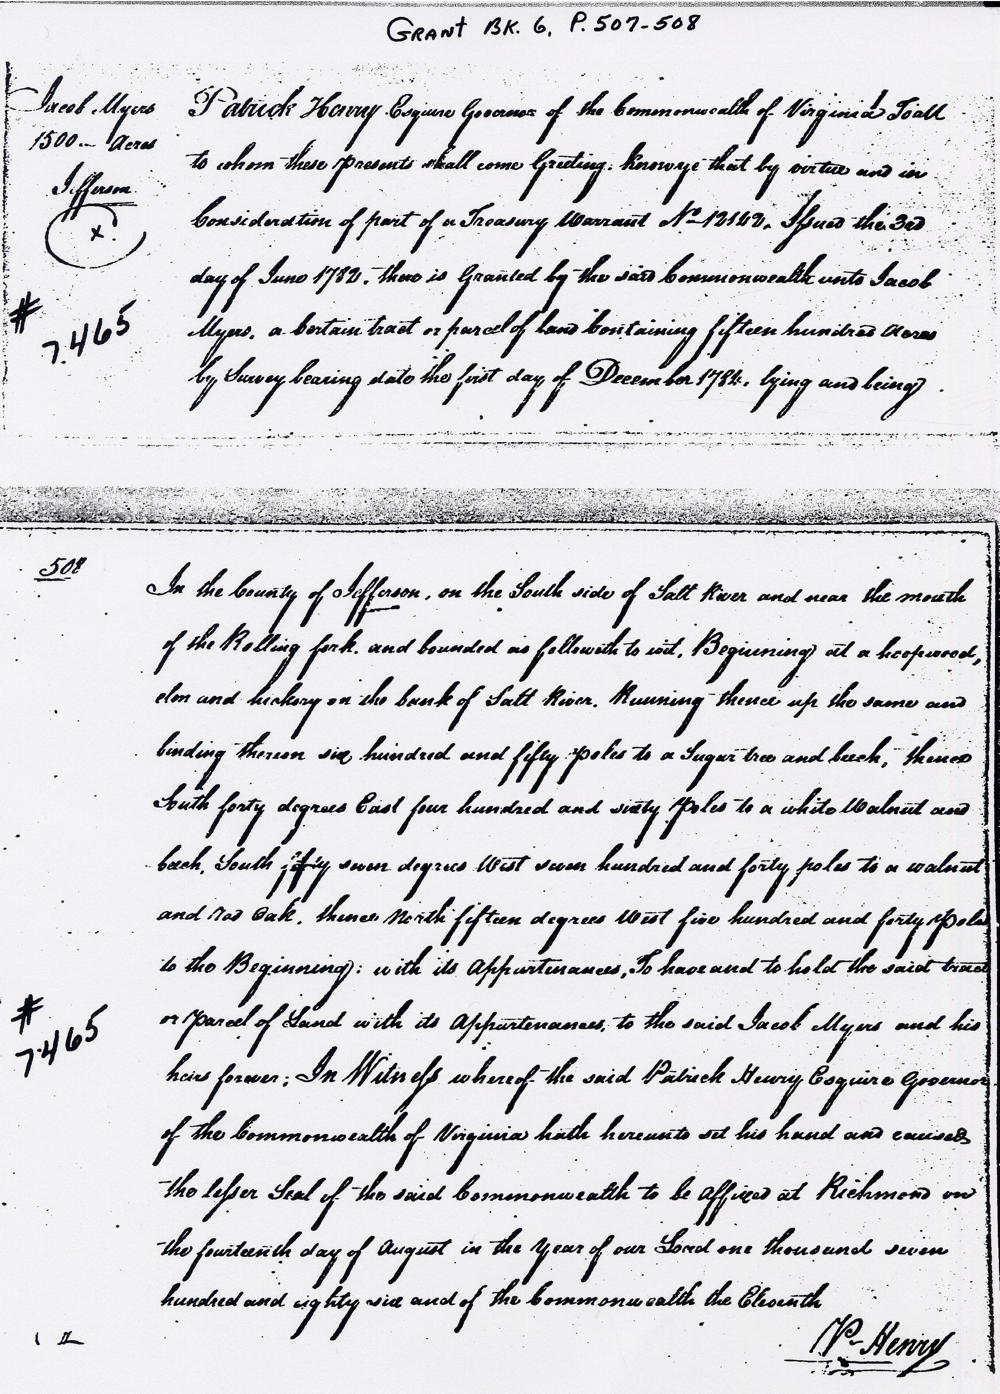 GRANT BK. 6, P. 507-508
Jacob Myers
1500 - Acres
Jefferson
x.
# 7.465
Patrick Henry Esquire Governor of the Commonwealth of Virginia To all
to whom these presents shall come Greeting. Know ye that by virtue and in
Consideration of part of a Treasury Warrant No 12142. Issued the 3rd
day of June 1782. there is Granted by the said Commonwealth unto Jacob
Myers. a Certain tract or parcel of land Containing fifteen hundred Acres
by Survey bearing date the first day of December 1784. lying and being
508
In the County of Jefferson, on the South side of Salt River and near the mouth
of the Rolling fork. and bounded as followeth to wit, Beginning at a hoopwood,
elm and hickory on the bank of Salt River. Running thence up the same and
binding thereon six hundred and fifty poles to a Sugar tree and beech, thence
South forty degrees East four hundred and sixty Poles to a white Walnut and
beech, South seven degrees West seven hundred and forty poles to a walnut
and red Oak. thence North fifteen degrees West five hundred and forty Poles
to the Beginning: with its Appurtenances, To have and to hold the said tract
or parcel of Land with its Appurtenances, to the said Jacob Myers and his
heirs forever; In Witness whereof the said Patrick Henry Esquire Governor
of the Commonwealth of Virginia hath hereunto set his hand and caused
the lesser Seal of the said Commonwealth to be Affixed at Richmond on
the fourteenth day of August in the Year of our Lord one thousand seven
hundred and eighty six and of the Commonwealth the Eleventh
P. Henry
# 7.465